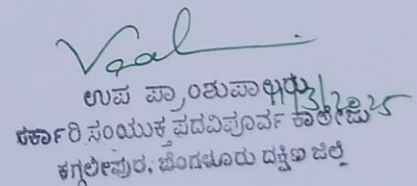 ಉಪ ಪ್ರಾಂಶುಪಾಲರು
11/3/2025
ಸರ್ಕಾರಿ ಸಂಯುಕ್ತ ಪದವಿಪೂರ್ವ ಕಾಲೇಜು
ಕಗ್ಗಲೀಪುರ, ಬೆಂಗಳೂರು ದಕ್ಷಿಣ ಜಿಲ್ಲೆ